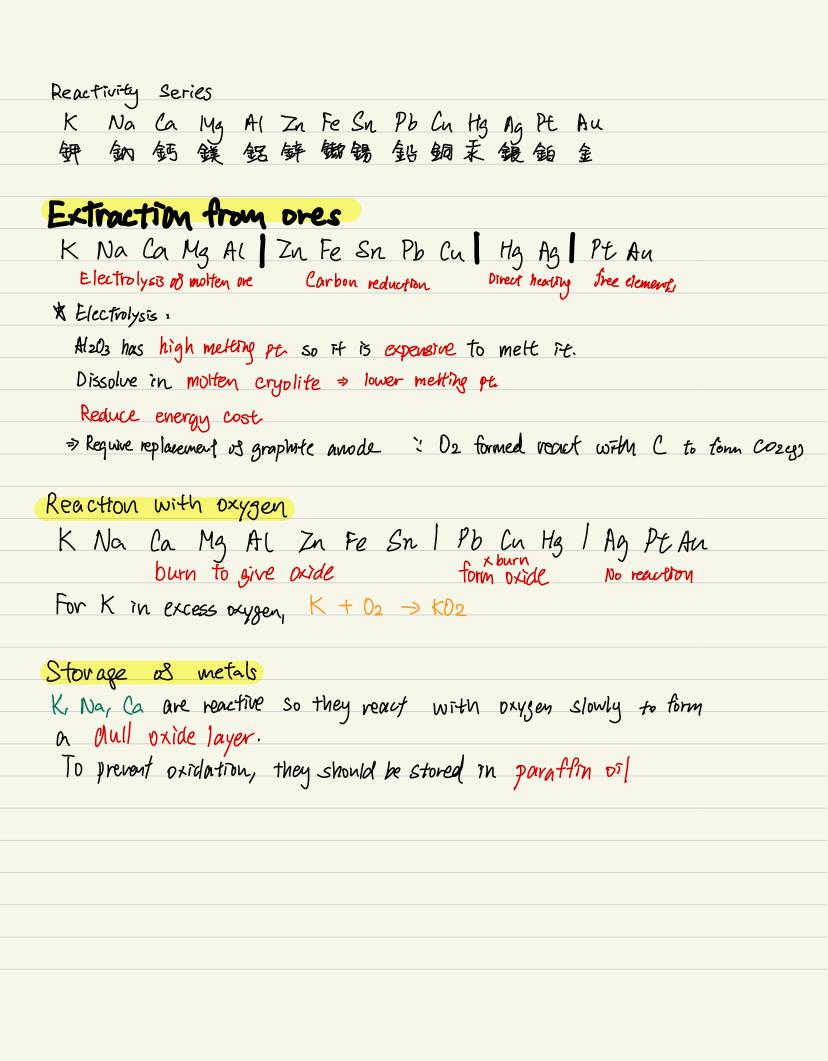 Reactivity Series
K Na Ca Mg Al Zn Fe Sn Pb Cu Hg Ag Pt Au
鉀 鈉 鈣 鎂 鋁 鋅 錫 鉛 銅 汞 銀 鉑 金
Extraction from ores
K Na Ca Mg Al | Zn Fe Sn Pb Cu | Hg Ag | Pt Au
Electrolysis of molten ore Carbon reduction Direct heating free elements
* Electrolysis:
Al2O3 has high melting pt. so it is expensive to melt it.
Dissolve in molten cryolite ⇒ lower melting pt.
Reduce energy cost
⇒ Require replacement of graphite anode ∵ O2 formed react with C to form CO2(g)
Reaction with oxygen
K Na Ca Mg Al Zn Fe Sn | Pb Cu Hg | Ag Pt Au
x burn
burn to give oxide form oxide No reaction
For K in excess oxygen, K + O2 → KO2
Storage of metals
K, Na, Ca are reactive so they react with oxygen slowly to form
a dull oxide layer.
To prevent oxidation, they should be stored in paraffin oil